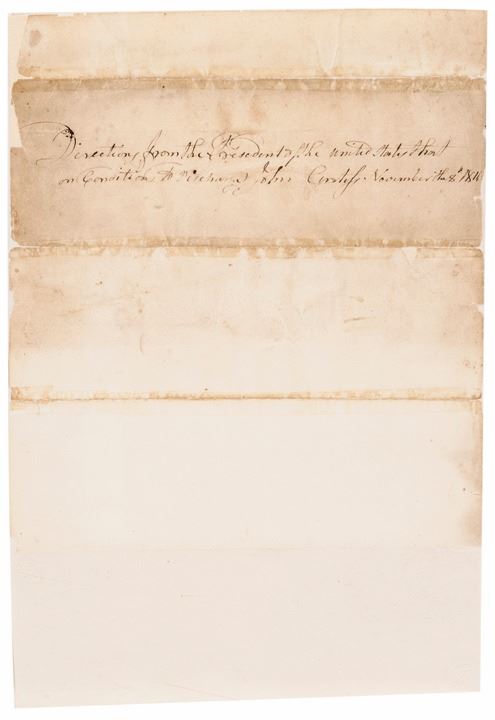 Directions from the President of the united states that
on Condition to Discharge John Curtess. November the 8th 1810